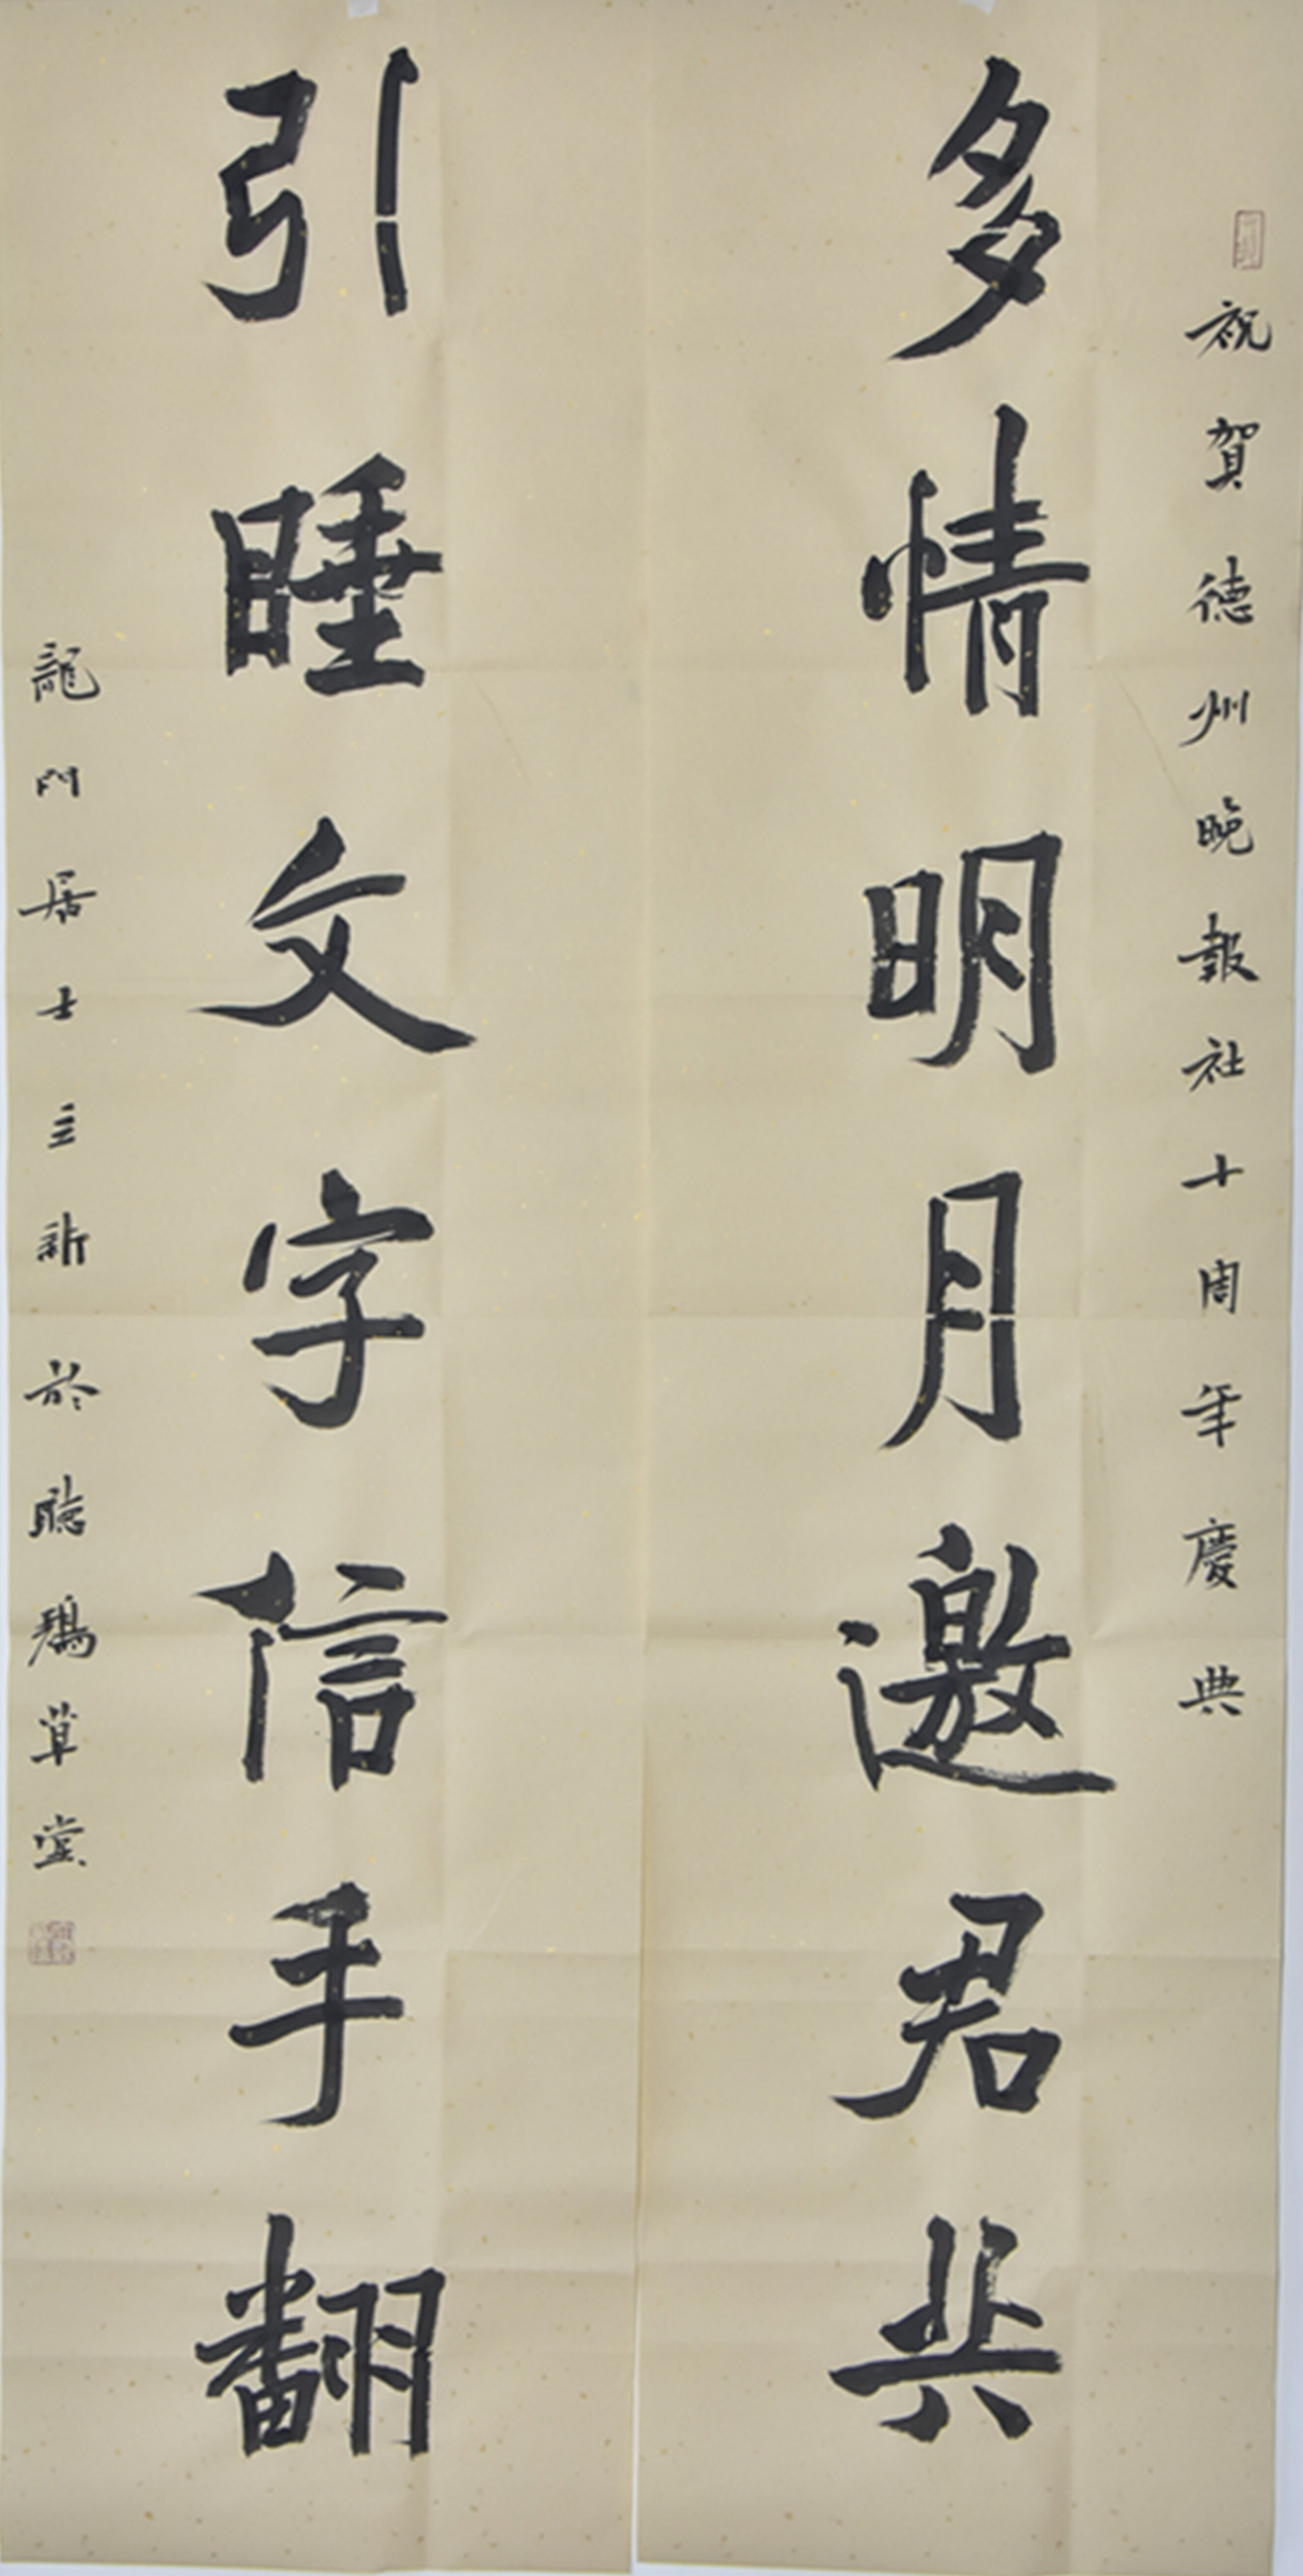 祝賀德州晚報社十周年慶典
多情明月邀君共
引睡文字信手翻
龍門居士立新於聽鵝草堂